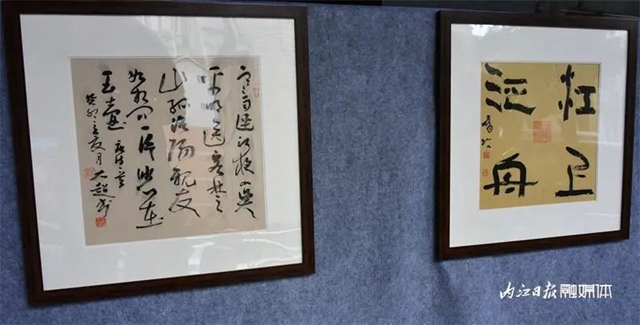 寒雨連江夜入吳
平明送客楚
山孤洛陽親友
如相問一片冰心在
玉壺
癸卯之夏月 大超書
江上
泛舟
内江日报融媒体